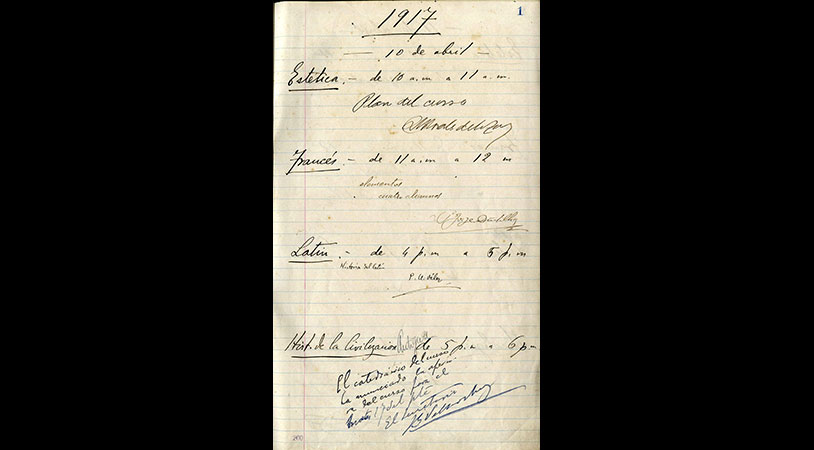 1
1917
10 de abril
Estética.- de 10 a.m a 11 a.m.
Plan del curso
Francés.- de 11 a.m a 12 m
elementos
cuatro alumnos
Latin.- de 4 p.m a 5 p.m
Historia del latín
Hist. de la Civilización de 5 p.m a 6 p.m
El catedrático del curso
ha anunciado la apertu-
ra del curso para el
El Secretario
200